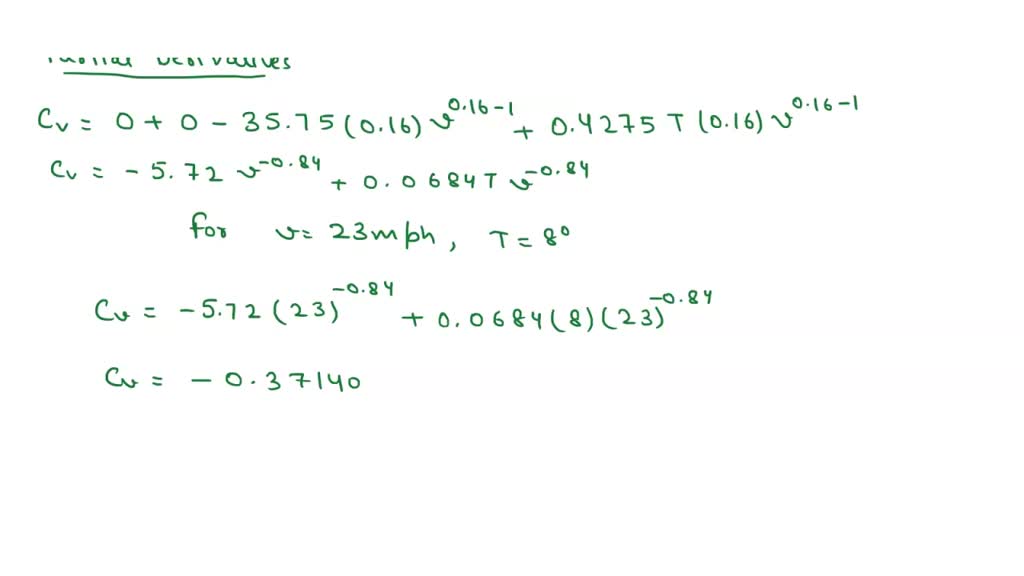 Cv = 0 + 0 - 35.75 (0.16) v^0.16-1 + 0.4275 T (0.16) v^0.16-1
Cv = - 5.72 v^-0.84 + 0.0684 T v^-0.84
for v = 23 mph, T = 8°
Cv = -5.72 (23)^-0.84 + 0.0684 (8) (23)^-0.84
Cv = - 0.37140